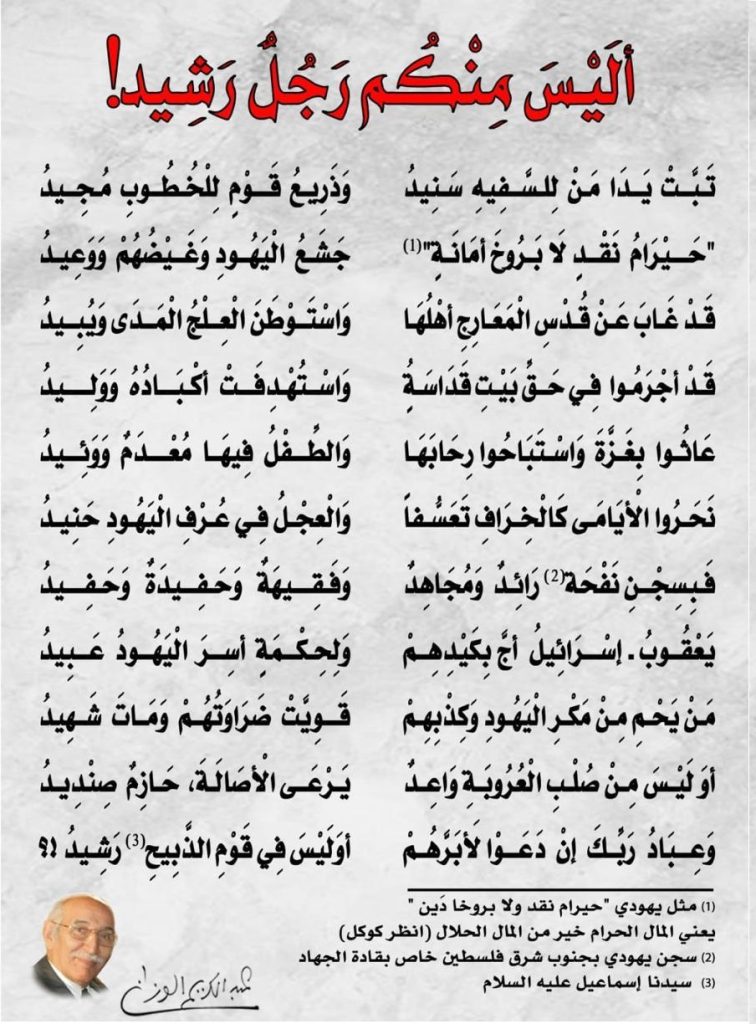 ألَيْسَ مِنْكُم رَجُلٌ رَشِيد!
تَبَّتْ يَدَا مَنْ لِلسَّفِيهِ سَنِيدُ وَذَرِيعُ قَوْمٍ لِلْخُطُوبِ مُجِيدُ
"حَيْرَامُ نَقْدٍ لَا بَرُوخَ أمَانَةٍ"(1) جَشَعُ الْيَهُودِ وَغَيْضُهُمْ وَوَعِيدُ
قَدْ غَابَ عَنْ قُدْسِ الْمَعَارِجِ أهْلُهَا وَاسْتَوْطَنَ الْعِلْجُ الْمَدَى وَيُبِيدُ
قَدْ أجْرَمُوا فِي حَقِّ بَيْتِ قَدَاسَةٍ وَاسْتُهْدِفَتْ أكْبَادُهُ وَوَلِيدُ
عَاثُوا بِغَزَّةَ وَاسْتَبَاحُوا رِحَابَهَا وَالطِّفْلُ فِيهَا مُعْدَمٌ وَوَئِيدُ
نَحَرُوا الْأيَامَى كَالْخِرَافِ تَعَسُّفاً وَالْعِجْلُ فِي عُرْفِ الْيَهُودِ حَنِيدُ
فَبِسِجْنِ نَفْحَة(2) رَائِدٌ وَمُجَاهِدٌ وَفَقِيهَةٌ وَحَفِيدَةٌ وَحَفِيدُ
يَعْقُوبُ. إسْرَائِيلُ أجَّ بِكَيْدِهِمْ وَلِحِكْمَةٍ أسِرَ الْيَهُودُ عَبِيدُ
مَنْ يَحْمِ مِنْ مَكْرِ الْيَهُودِ وَكَذْبِهِمْ قَوِيَّتْ ضَرَاوَتُهُمْ وَمَاتَ شَهِيدُ
أوَ لَيْسَ مِنْ صُلْبِ الْعُرُوبَةِ وَاعِدٌ يَرْعَى الْأصَالَةَ، حَازِمٌ صِنْدِيدُ
وَعِبَادُ رَبِّكَ إنْ دَعَوْا لَأبَرَّهُمْ أوَلَيْسَ فِي قَوْمِ الذَّبِيحِ(3) رَشِيدُ ؟!
(1) مثل يهودي "حيرام نقد ولا بروخا دَين "
يعني المال الحرام خير من المال الحلال (انظر كوكل)
(2) سجن يهودي بجنوب شرق فلسطين خاص بقادة الجهاد
(3) سيدنا إسماعيل عليه السلام
عبد الكريم الوزاني